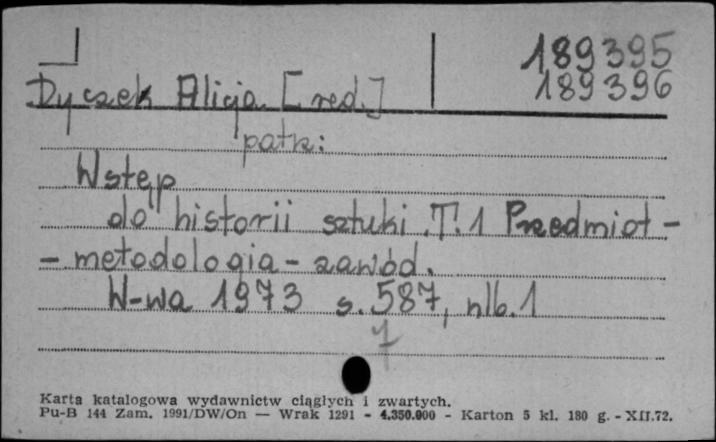 189395
189396
Dyczek Alicja [red.]
patrz:
Wstęp
do historii sztuki. T. 1 Przedmiot -
- metodologia - zawód.
W-wa 1973 s. 587, nlb. 1
7
Karta katalogowa wydawnictw ciągłych i zwartych.
Pu-B 144 Zam. 1991/DW/On — Wrak 1291 - 4.350.000 - Karton 5 kl. 180 g. - XII.72.